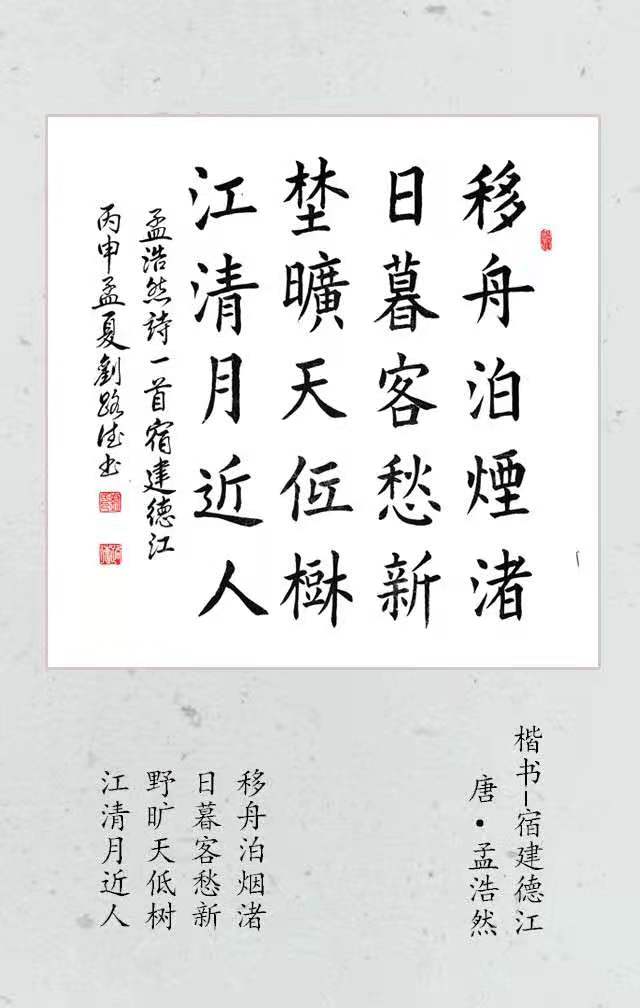 移舟泊煙渚
日暮客愁新
埜曠天仾樹
江清月近人
孟浩然詩一首宿建德江
丙申孟夏劉路书
楷书-宿建德江
唐·孟浩然
移舟泊烟渚
日暮客愁新
野旷天低树
江清月近人